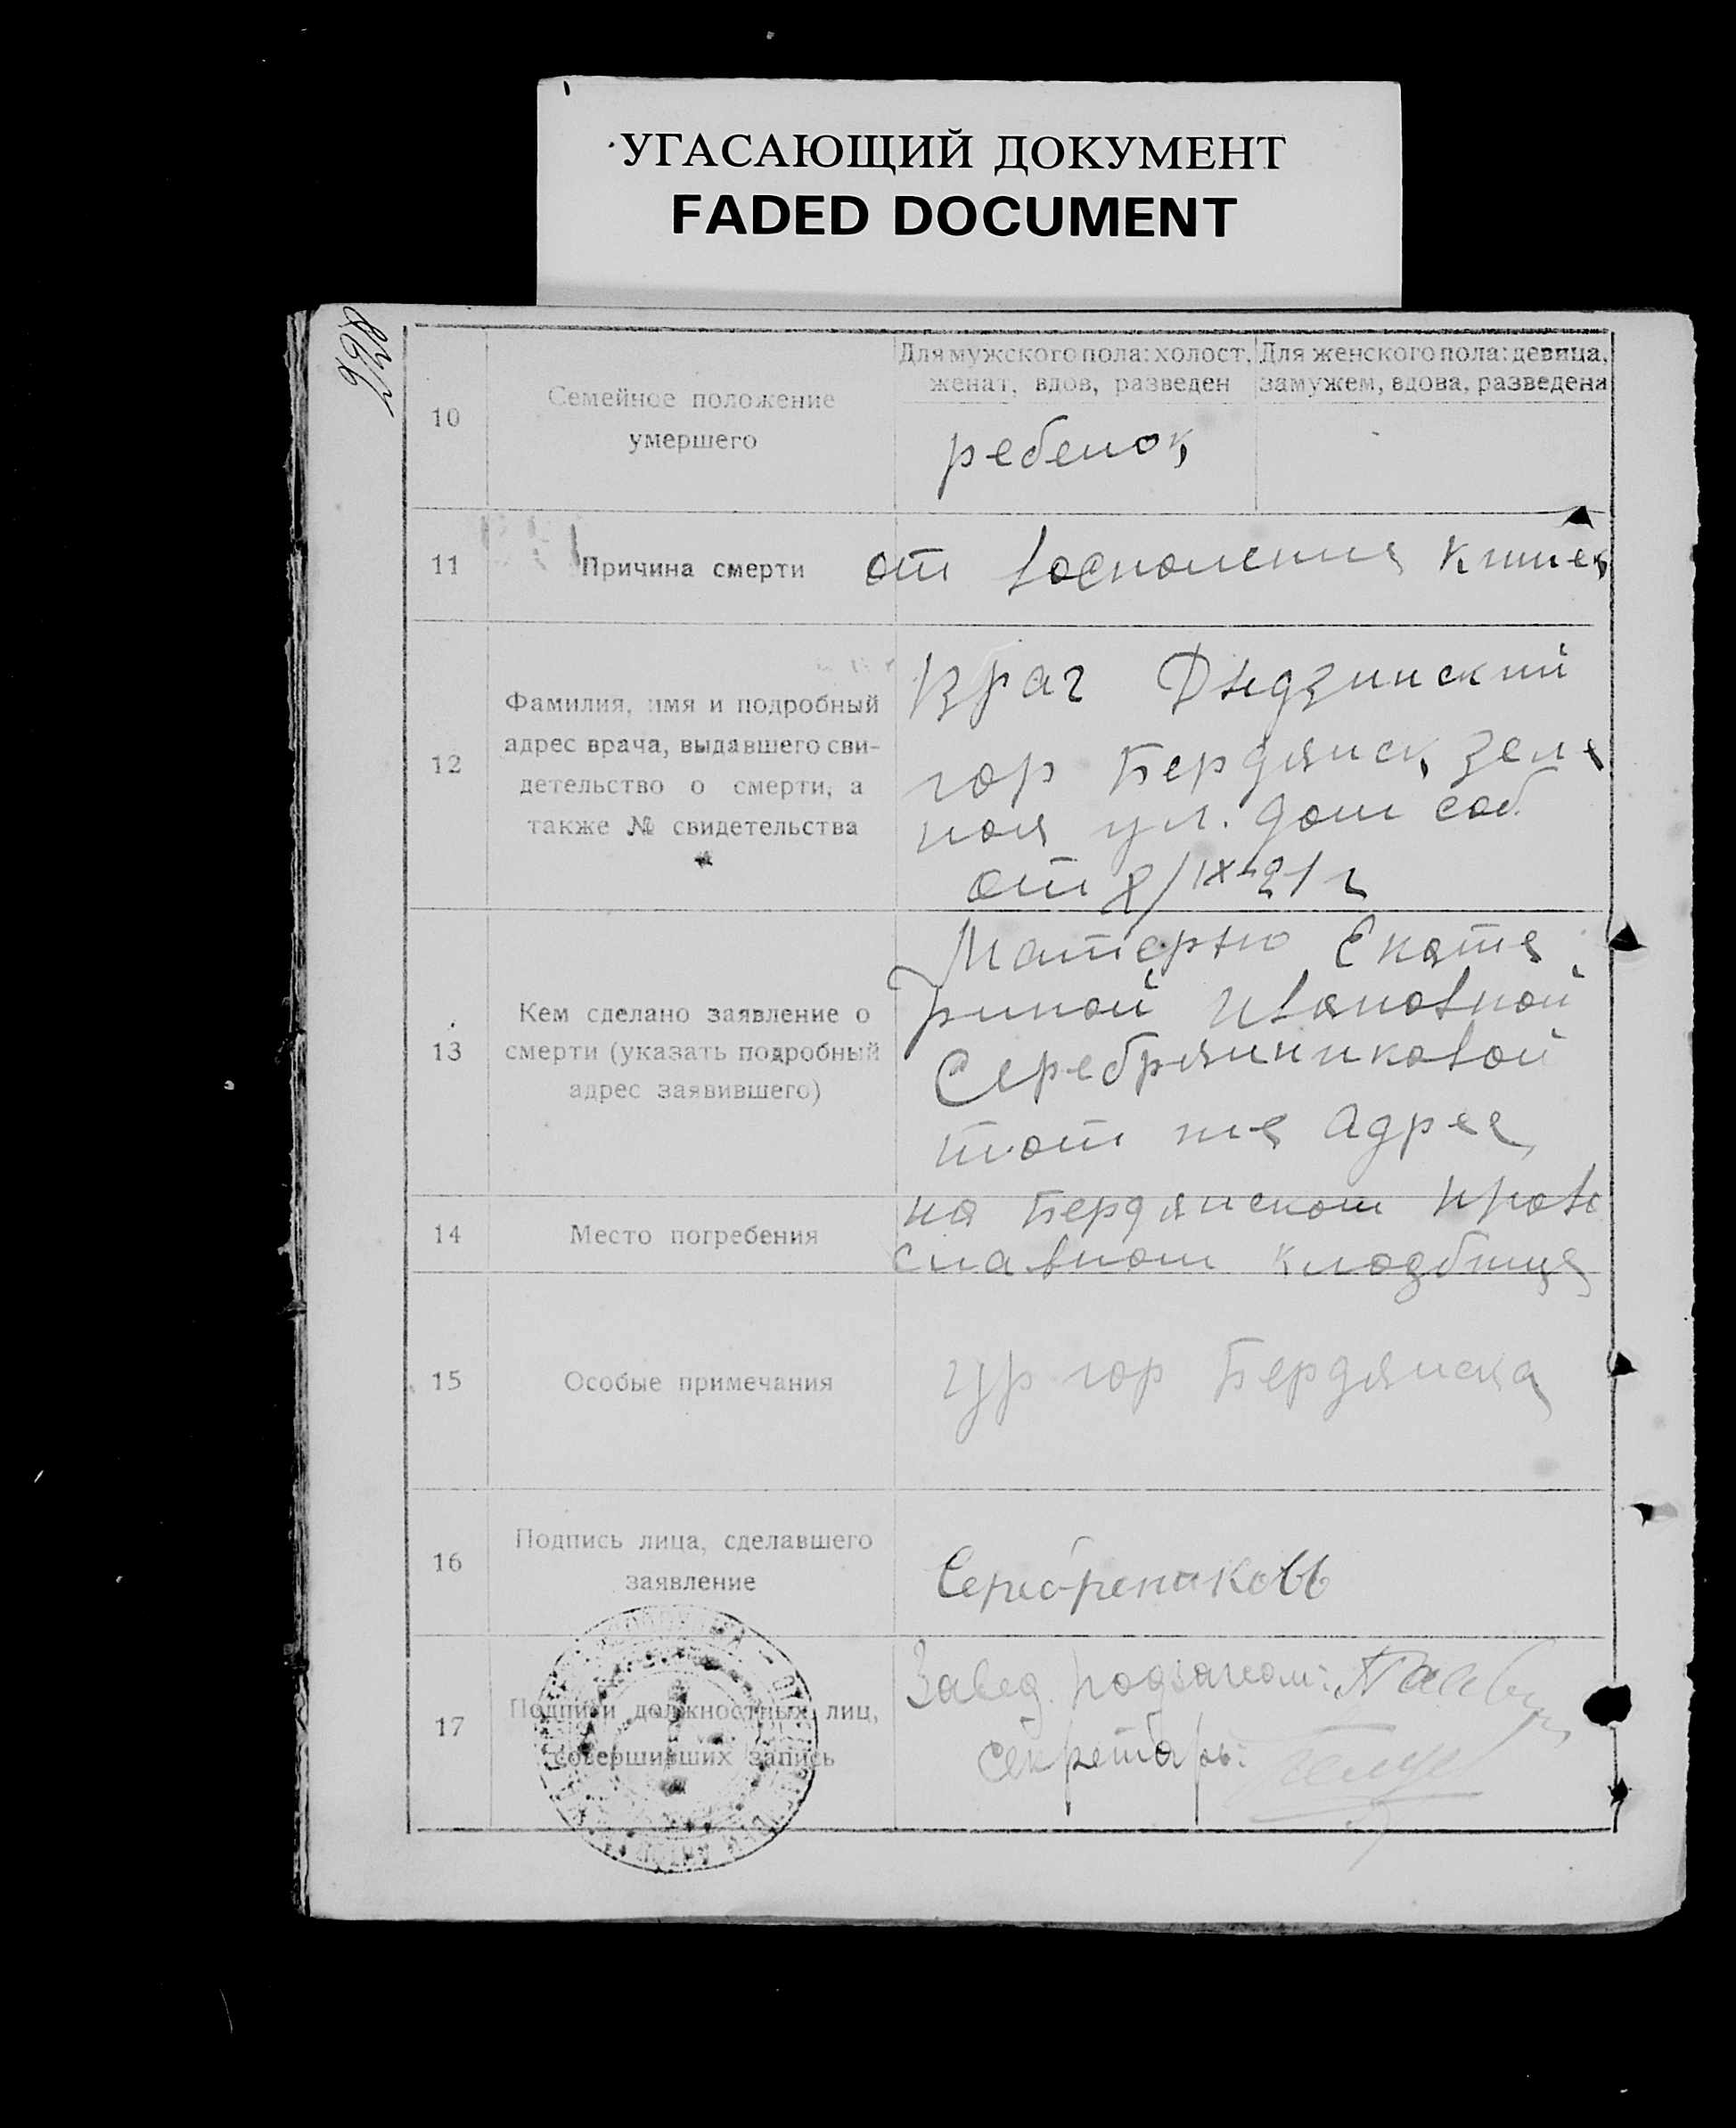 УГАСАЮЩИЙ ДОКУМЕНТ
FADED DOCUMENT
10
Семейное положение
умершего
Для мужского пола: холост,
женат, вдов, разведен
Для женского пола: девица,
замужем, вдова, разведена
ребенок
11
Причина смерти
от воспаления кишек
12
Фамилия, имя и подробный
адрес врача, выдавшего сви-
детельство о смерти, а
также № свидетельства
Врач Дыдзинский
гор Бердянск, зеле
ная ул. дом соб.
от 8/IX-21 г
13
Кем сделано заявление о
смерти (указать подробный
адрес заявившего)
Матерью Екате
риной Ивановной
Серебрянниковой
тот же адрес
14
Место погребения
на Бердянском право
славном кладбище
15
Особые примечания
гр гор Бердянска
16
Подпись лица, сделавшего
заявление
17
Подписи должностных лиц,
совершивших запись
Завед. подзагсом:
секретарь: